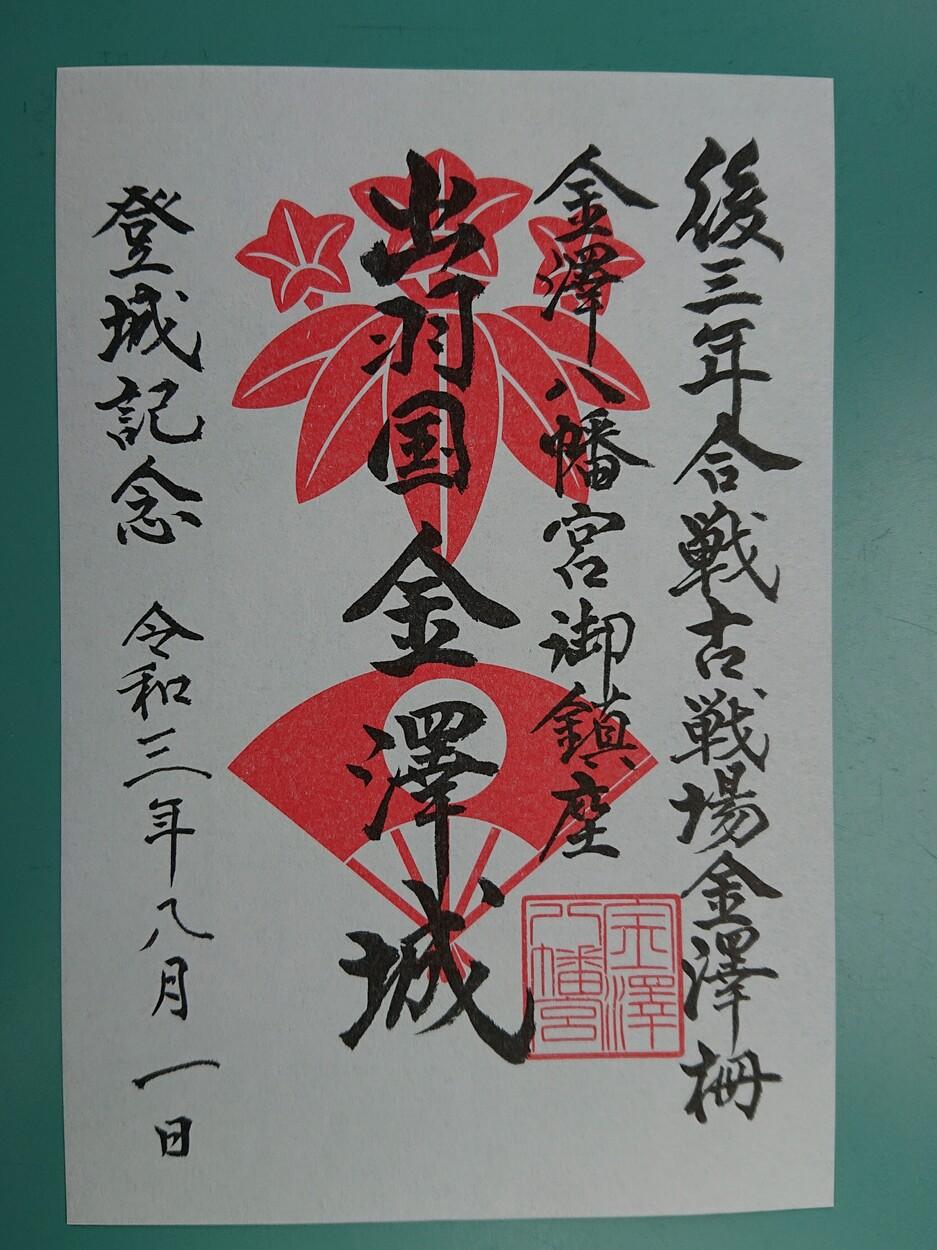 後三年合戦古戦場金澤柵
金澤八幡宮御鎮座
出羽国金澤城
登城記念 令和三年八月一日
金澤
八幡宮